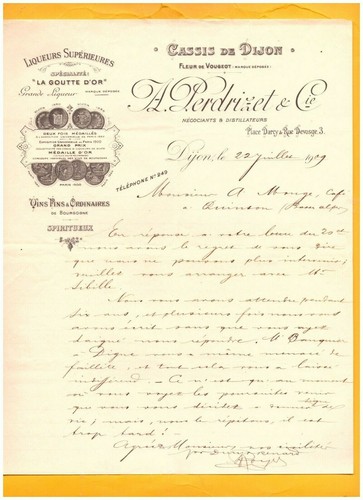 LIQUEURS SUPÉRIEURES
SPÉCIALITÉ
"LA GOUTTE D'OR"
Grande Liqueur
MARQUE DÉPOSÉE
DEUX FOIS MÉDAILLÉS
GRAND PRIX
MÉDAILLE D'OR
PARIS 1900
VINS FINS & ORDINAIRES
DE BOURGOGNE
SPIRITUEUX
CASSIS DE DIJON
FLEUR DE VOUGEOT - MARQUE DÉPOSÉE -
A. Perdrizet & Cie
NÉGOCIANTS & DISTILLATEURS
Place Darcy & Rue Devosge, 3.
Dijon, le 22 Juillet 1909
TÉLÉPHONE Nº 340
Monsieur A Monge, Café
à Quinson (Basses alpes)
En réponse à votre lettre du 20 ct
nous avons le regret de vous dire
que nous ne pouvons plus intervenir;
veuillez vous arranger avec Me
Sébille.
Nous vous avons attendu pendant
dix ans, et plusieurs fois nous vous
avons écrit sans que vous ayez
daigné nous répondre. Mr
à Digne vous a même menacé de
faillite, et tout cela vous a laissé
indifférent. Ce n'est qu'au moment
où vous voyez les poursuites venir
que vous vous décidez à donner signe
de vie; mais, nous le répétons, il est
trop tard!
Agréez Monsieur, nos